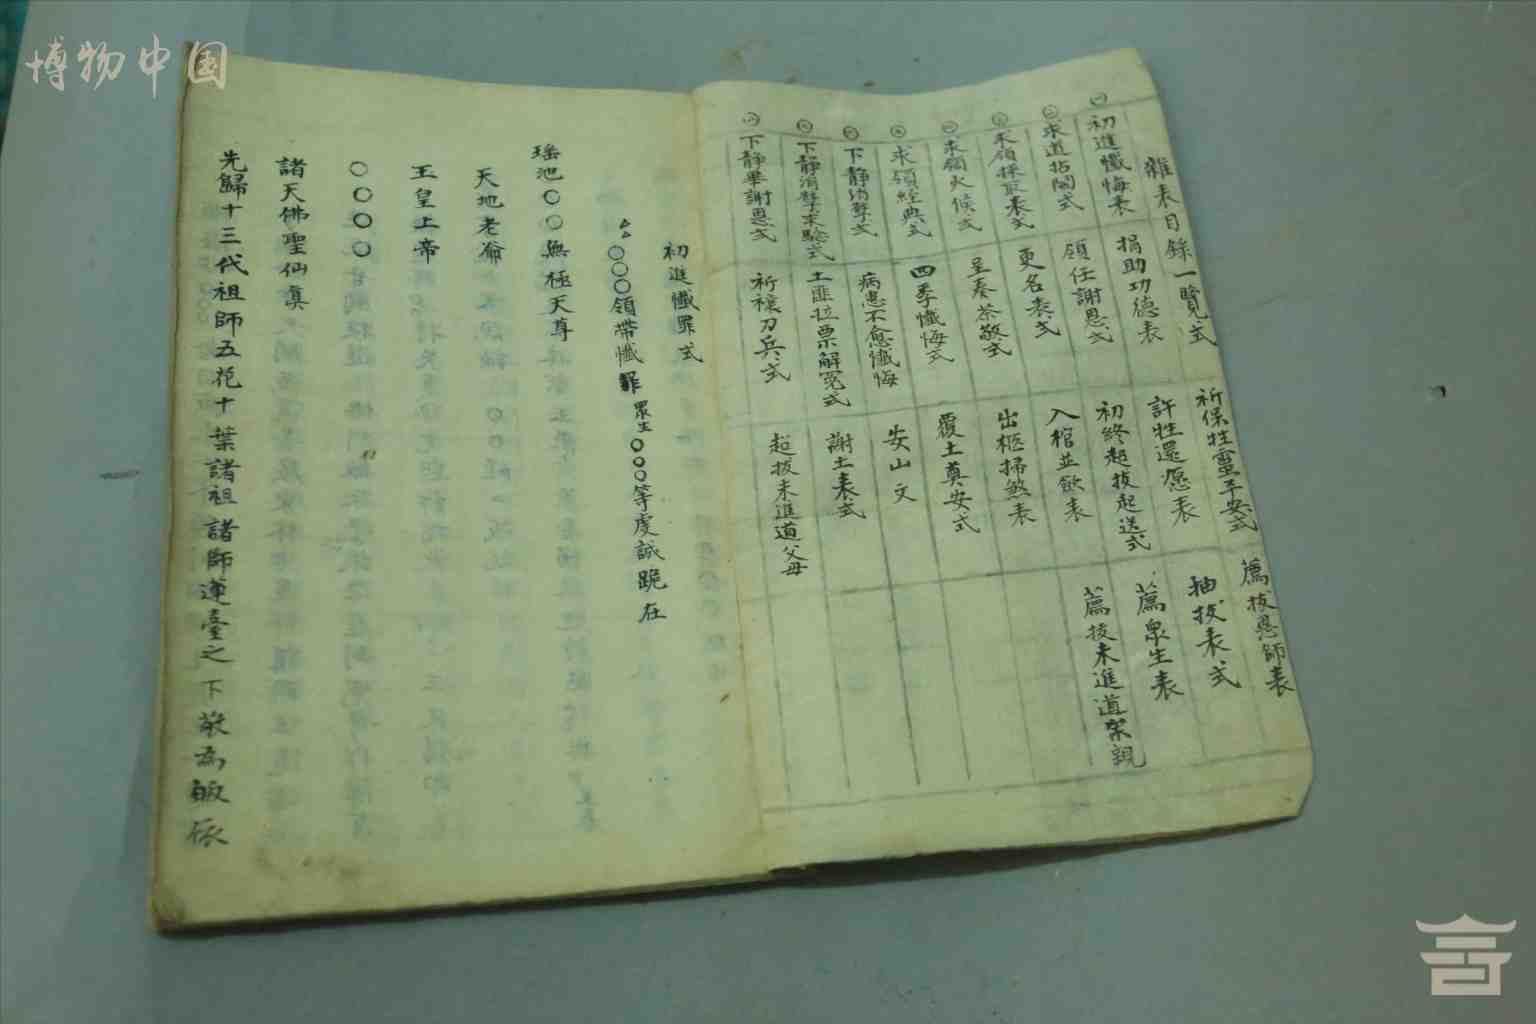 博物中国
雜表目錄一覽式
㊀初進懺悔表
㊁求道拈鬮式
㊂求領採取表式
㊃求領火候式
求領經典式
下靜消孽式
下靜消孽求騐式
下靜畢謝恩式
捐助功德表
領任謝恩式
更名表式
呈奏茶敬式
四季懺悔式
病患不愈懺悔
土匪拉票解冤式
祈禳刀兵式
祈保牲靈平安式
許牲還愿表
初終超拔起送式
入棺並歛表
出柩掃煞表
覆土奠安式
安山文
謝土表式
超拔未進道父母
薦拔恩師表
抽拔表式
薦衆生表
薦拔未進道眾親
初進懺罪式
〇〇〇領帶懺罪眾生〇〇〇等虔誠跪在
瑤池〇〇無極天尊
天地老爺
玉皇上帝
〇〇〇〇
諸天佛聖仙真
先歸十三代祖師五花十葉諸祖諸師蓮臺之下敬為皈依